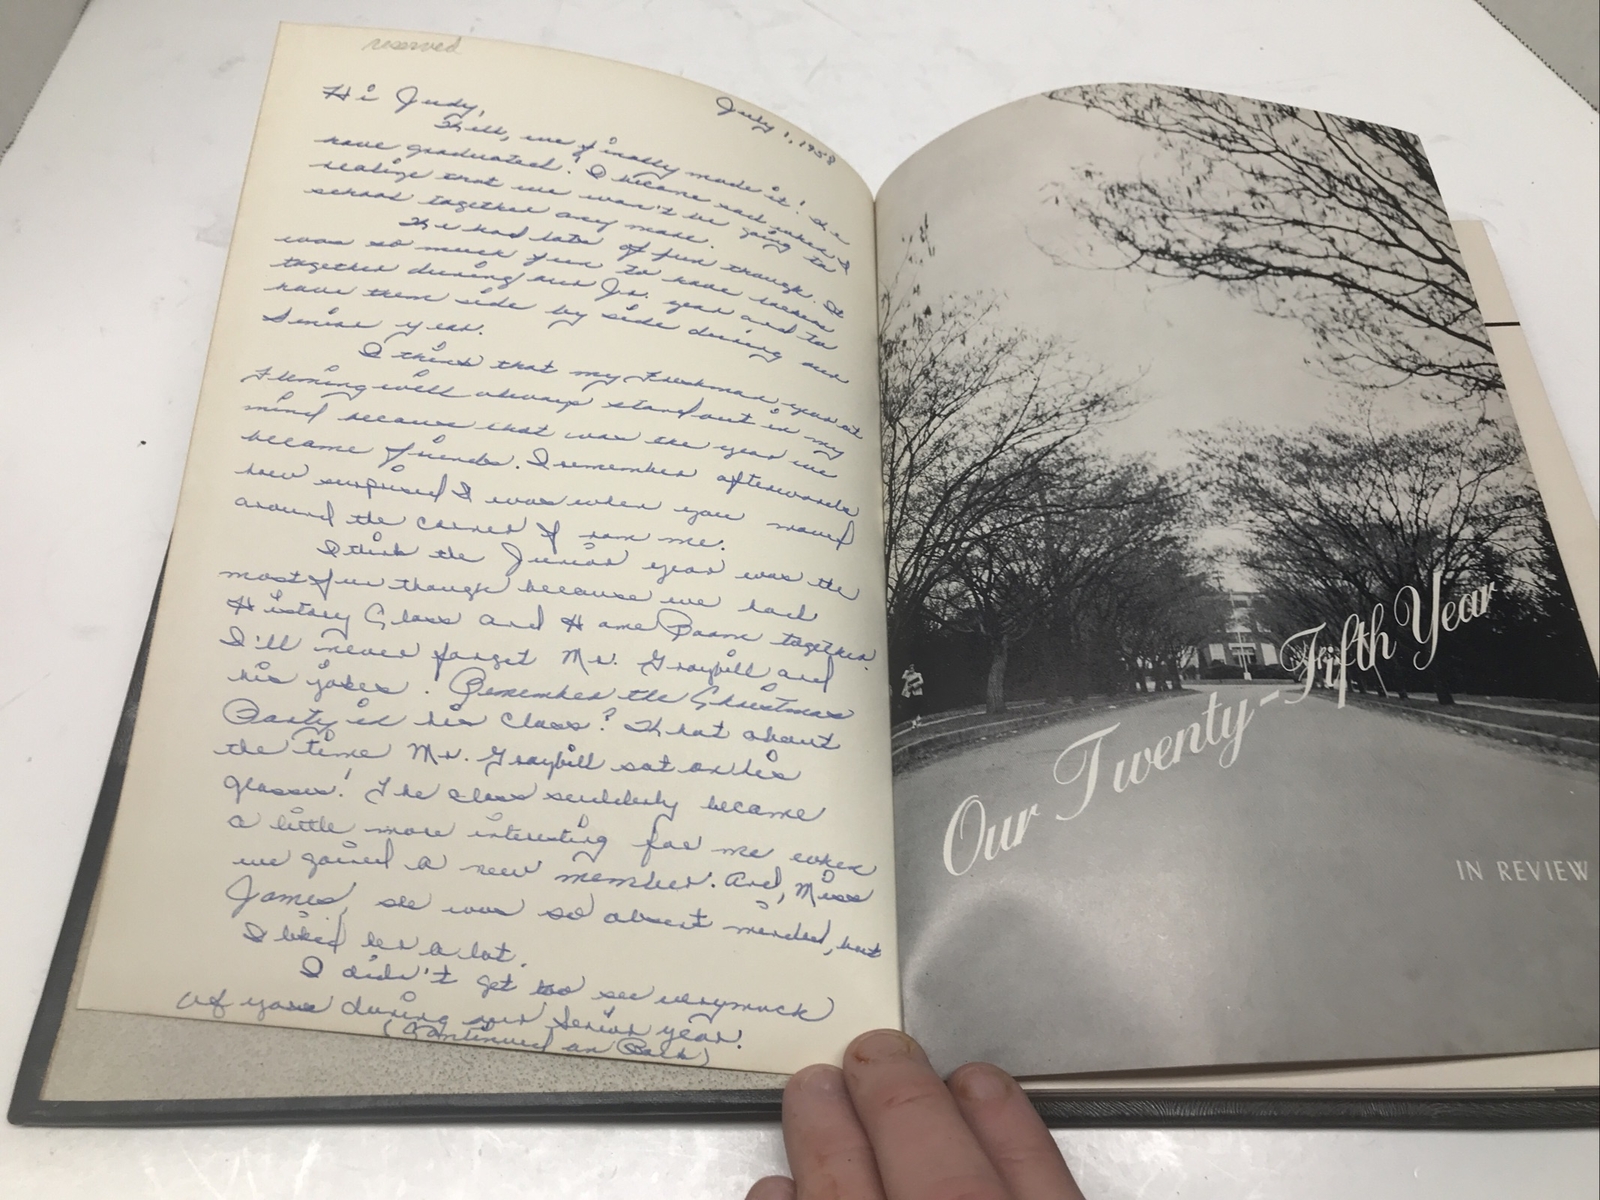 reserved
July 1, 1958
Hi Judy,
Well, we finally made it! We
have graduated! I became sad when I
realize that we won't be going to
school together any more.
We had lots of fun though. It
was so much fun to have lockers
together during our Jr. year and to
have them side by side during our
Senior year.
I think that my Freshman year at
Fleming will always stand out in my
mind because that was the year we
became friends. I remember afterwards
how surprised I was when you moved
around the corner from me.
I think the Junior year was the
most fun though because we had
History Class and Home Room together.
I'll never forget Mr. Graybill and
his jokes. Remember the Christmas
Party in his class? What about
the time Mr. Graybill sat on his
glasses! The class suddenly became
a little more interesting for me when
we gained a new member. And, Miss
James, she was so absent minded, but
I liked her a lot.
I didn't get to see very much
of you during our Senior year.
(Continued on Back)
Our Twenty-Fifth Year
IN REVIEW